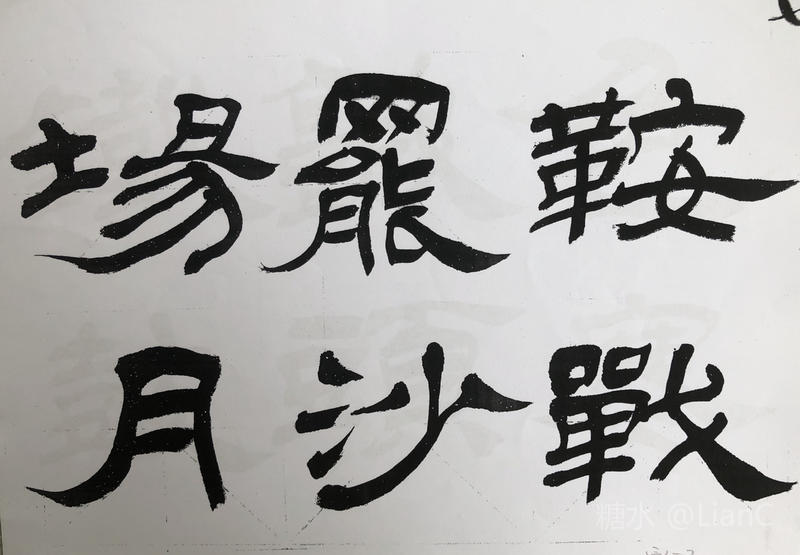 鞍戰
罷沙
場月
糖水 @LianC